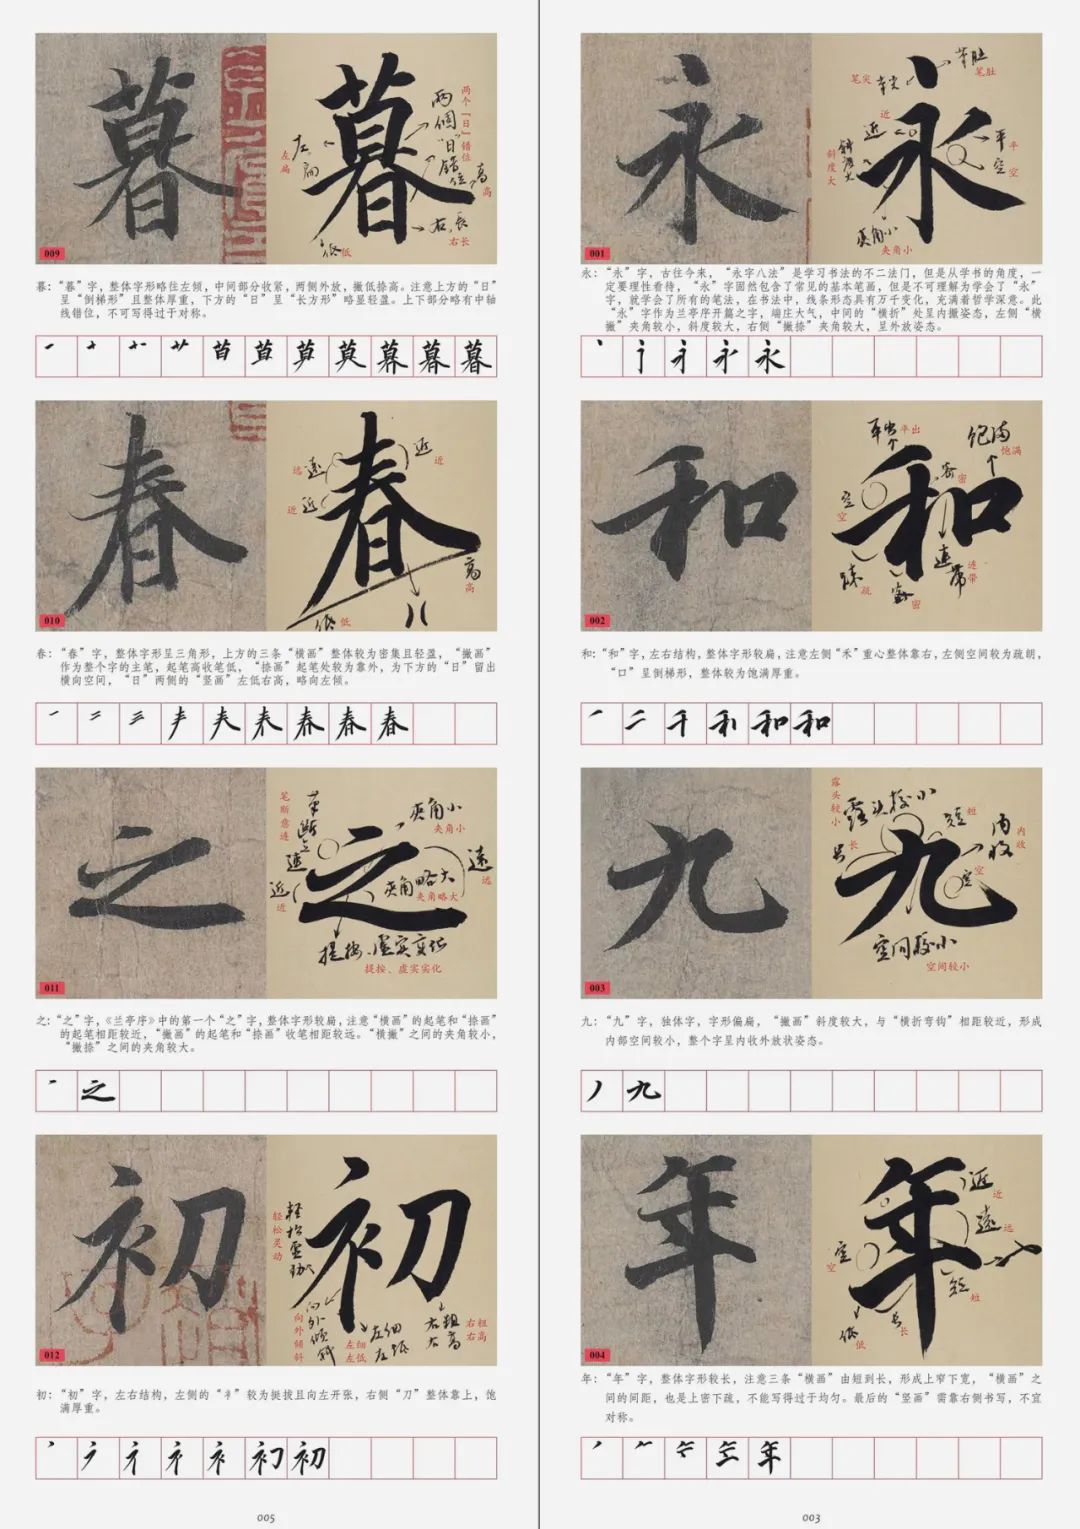 暮
暮
两个「日」错位
兩個“日”错位
左扁
高
高
右长
右长
低
低
009
暮：“暮”字，整体字形略往左倾，中间部分收紧，两侧外放，撇低捺高。注意上方的“日”
呈“倒梯形”且整体厚重，下方的“日”呈“长方形”略显轻盈。上下部分略有中轴
线错位，不可写得过于对称。
暮
春
春
近
近
远
遠
近
近
高
高
低
低
010
春：“春”字，整体字形呈三角形，上方的三条“横画”整体较为密集且轻盈，“撇画”
作为整个字的主笔，起笔高收笔低，“捺画”起笔处较为靠外，为下方的“日”留出
横向空间，“日”两侧的“竖画”左低右高，略向左倾。
春
之
之
笔断意连
夹角小
夹角小
遠
远
近
近
夹角略大
夹角略大
提按、虚实变化
提按、虚实实化
011
之：“之”字，《兰亭序》中的第一个“之”字，整体字形较扁，注意“横画”的起笔和“捺画”
的起笔相距较近，“撇画”的起笔和“捺画”收笔相距较远。“横撇”之间的夹角较小，
“撇捺”之间的夹角较大。
之
初
初
轻松灵动
向外倾斜
左细
左低
右粗
右高
012
初：“初”字，左右结构，左侧的“衤”较为挺拔且向左开张，右侧“刀”整体靠上，饱
满厚重。
初
005
永
永
笔尖
笔肚
近
近
斜度大
斜度大
平
平
空
空
夹角小
夹角小
001
永：“永”字，古往今来，“永字八法”是学习书法的不二法门，但是从学书的角度，一
定要理性看待，“永”字固然包含了常见的基本笔画，但是不可理解为学会了“永”
字，就学会了所有的笔法，在书法中，线条形态具有万千变化，充满着哲学深意。此
“永”字作为兰亭序开篇之字，端庄大气，中间的“横折”处呈内擫姿态，左侧“横
撇”夹角较小，斜度较大，右侧“撇捺”夹角较大，呈外放姿态。
永
和
和
平出
平出
饱满
饱满
密
密
空
空
疏
疏
密
密
连带
連带
002
和：“和”字，左右结构，整体字形较扁，注意左侧“禾”重心整体靠右，左侧空间较为疏朗，
“口”呈倒梯形，整体较为饱满厚重。
和
九
九
露头较小
露头较小
短
短
内收
内收
长
长
空
空
空间较小
空间较小
003
九：“九”字，独体字，字形偏扁，“撇画”斜度较大，与“横折弯钩”相距较近，形成
内部空间较小，整个字呈内收外放状姿态。
九
年
年
近
近
遠
远
空
空
短
短
长
长
低
低
004
年：“年”字，整体字形较长，注意三条“横画”由短到长，形成上窄下宽，“横画”之
间的间距，也是上密下疏，不能写得过于均匀。最后的“竖画”需靠右侧书写，不宜
对称。
年
003